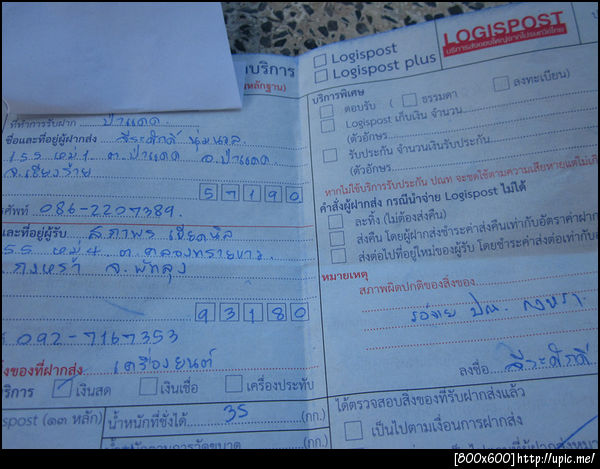 บริการ
หลักฐาน)
ที่ทำการรับฝาก ป่าแดด
ชื่อและที่อยู่ผู้ฝากส่ง ธีระศักดิ์
155 หมู่ 1 ต.ป่าแดด อ.ป่าแดด
จ.เชียงราย
57190
ศัพท์ 086-2207389.
และที่อยู่ผู้รับ สภาพร
55 หมู่ 4 ต. คลองทรายขาว
กงหรา จ. พัทลุง
93180
092-7167353
ของที่ฝากส่ง เครื่องยนต์
ริการ เงินสด เงินเชื่อ เครื่องประทับ
spost (๑๓ หลัก) น้ำหนักที่ชั่งได้ 35 (กก.)
(กก.)
Logispost
Logispost plus
LOGISPOST
บริการส่งของใหญ่จากไปรษณีย์ไทย
บริการพิเศษ
ตอบรับ ( ธรรมดา ลงทะเบียน)
Logispost เก็บเงิน จำนวน
(ตัวอักษร
รับประกัน จำนวนเงินรับประกัน
(ตัวอักษร
หากไม่ใช้บริการรับประกัน ปณท จะชดใช้ตามความเสียหายแต่ไม่เกิ
คำสั่งผู้ฝากส่ง กรณีนำจ่าย Logispost ไม่ได้
ละทิ้ง (ไม่ต้องส่งคืน)
ส่งคืน โดยผู้ฝากส่งชำระค่าส่งคืนเท่ากับอัตราค่าฝาก
ส่งต่อไปที่อยู่ใหม่ของผู้รับ โดยชำระค่าส่งต่อเท่ากับ
หมายเหตุ
สภาพผิดปกติของสิ่งของ
รอจ่าย ปณ. กงหรา
ลงชื่อ ธีระศักดิ์
ได้ตรวจสอบสิ่งของที่รับฝากส่งแล้ว
เป็นไปตามเงื่อนการฝากส่ง
[800x600]http://upic.me/